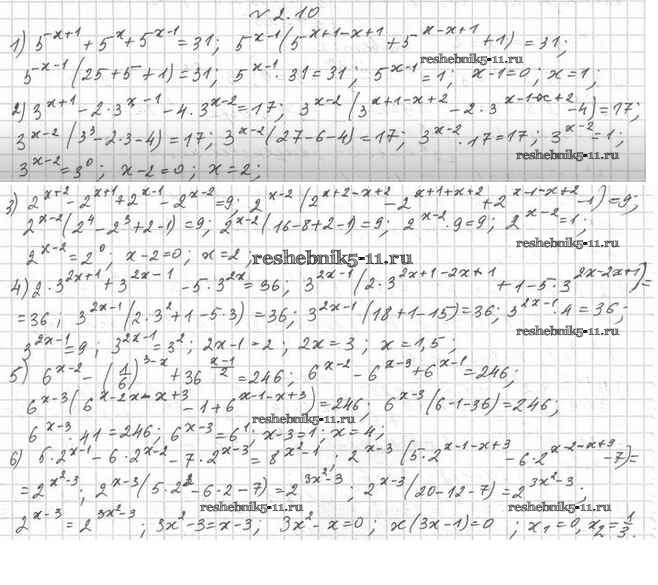 № 2.10
1) 5^{-x+1} + 5^x + 5^{x-1} = 31; 5^{x-1}(5^{x+1-x+1} + 5^{x-x+1} + 1) = 31;
reshebnik5-11.ru
5^{x-1}(25+5+1) = 31; 5^{x-1}·31 = 31; 5^{x-1} = 1; x-1=0; x=1;
2) 3^{x+1} - 2·3^{x-1} - 4·3^{x-2} = 17; 3^{x-2}(3^{x+1-x+2} - 2·3^{x-1-x+2} - 4) = 17;
3^{x-2}(3^3 - 2·3 - 4) = 17; 3^{x-2}(27-6-4) = 17; 3^{x-2}·17 = 17; 3^{x-2} = 1;
reshebnik5-11.ru
3^{x-2} = 3^0; x-2=0; x=2;
3) 2^{x+2} - 2^{x+1} + 2^{x-1} - 2^{x-2} = 9; 2^{x-2}(2^{x+2-x+2} - 2^{x+1+x+2} + 2^{x-1-x+2} - 1) = 9;
2^{x-2}(2^4 - 2^3 + 2 - 1) = 9; 2^{x-2}(16-8+2-1) = 9; 2^{x-2}·9 = 9; 2^{x-2} = 1;
reshebnik5-11.ru
2^{x-2} = 2^0; x-2=0; x=2;
reshebnik5-11.ru
4) 2·3^{2x+1} + 3^{2x-1} - 5·3^{2x} = 36; 3^{2x-1}(2·3^{2x+1-2x+1} + 1 - 5·3^{2x-2x+1}) =
= 36; 3^{2x-1}(2·3^2 + 1 - 5·3) = 36; 3^{2x-1}(18+1-15) = 36; 3^{2x-1}·4 = 36;
reshebnik5-11.ru
3^{2x-1} = 9; 3^{2x-1} = 3^2; 2x-1=2; 2x=3; x=1,5;
5) 6^{x-2} - (1/6)^{3-x} + 36^{\frac{x-1}{2}} = 246; 6^{x-2} - 6^{x-3} + 6^{x-1} = 246;
6^{x-3}(6^{x-2-x+3} - 1 + 6^{x-1-x+3}) = 246; 6^{x-3}(6-1-36) = 246;
reshebnik5-11.ru
6^{x-3}·41 = 246; 6^{x-3} = 6^1; x-3=1; x=4;
6) 5·2^{x-1} - 6·2^{x-2} - 7·2^{x-3} = 8^{x^2-1}; 2^{x-3}(5·2^{x-1-x+3} - 6·2^{x-2-x+3} - 7) =
reshebnik5-11.ru
= 2^{x^2-3}; 2^{x-3}(5·2^2 - 6·2 - 7) = 2^{3x^2-3}; 2^{x-3}(20-12-7) = 2^{3x^2-3};
reshebnik5-11.ru reshebnik5-11.ru
2^{x-3} = 2^{3x^2-3}; 3x^2-3 = x-3; 3x^2-x=0; x(3x-1)=0; x_1=0, x_2=1/3.